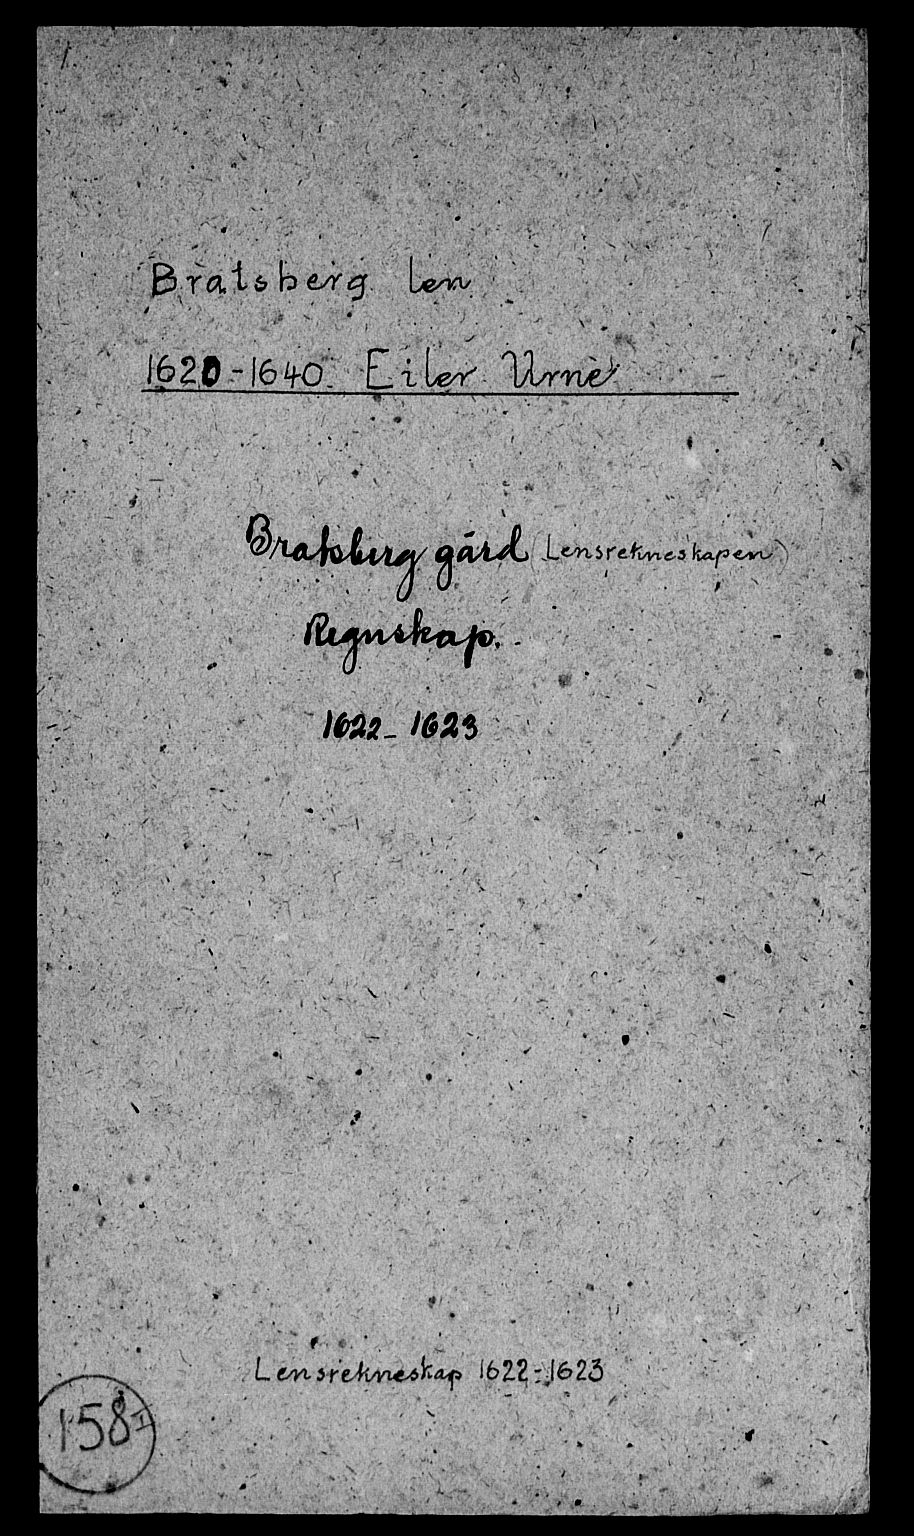 Bratsberg len
1620-1640. Eiler Urne
Bratsberg gård (Lensrekneskapen)
Regnskap.
1622-1623
Lensrekneskap 1622-1623
158 I